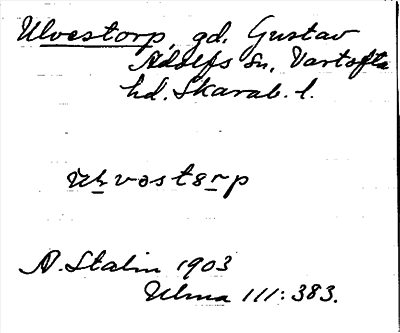 Ulvestorp, gd. Gustav
Adolfs sn, Vartofta
hd. Skarab. l.
A. Stalin 1903
Ulma 111:383.